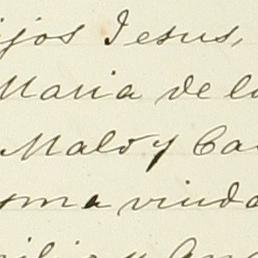 ijos Jesus,
Maria de l
Malo y Ca
sma viuda